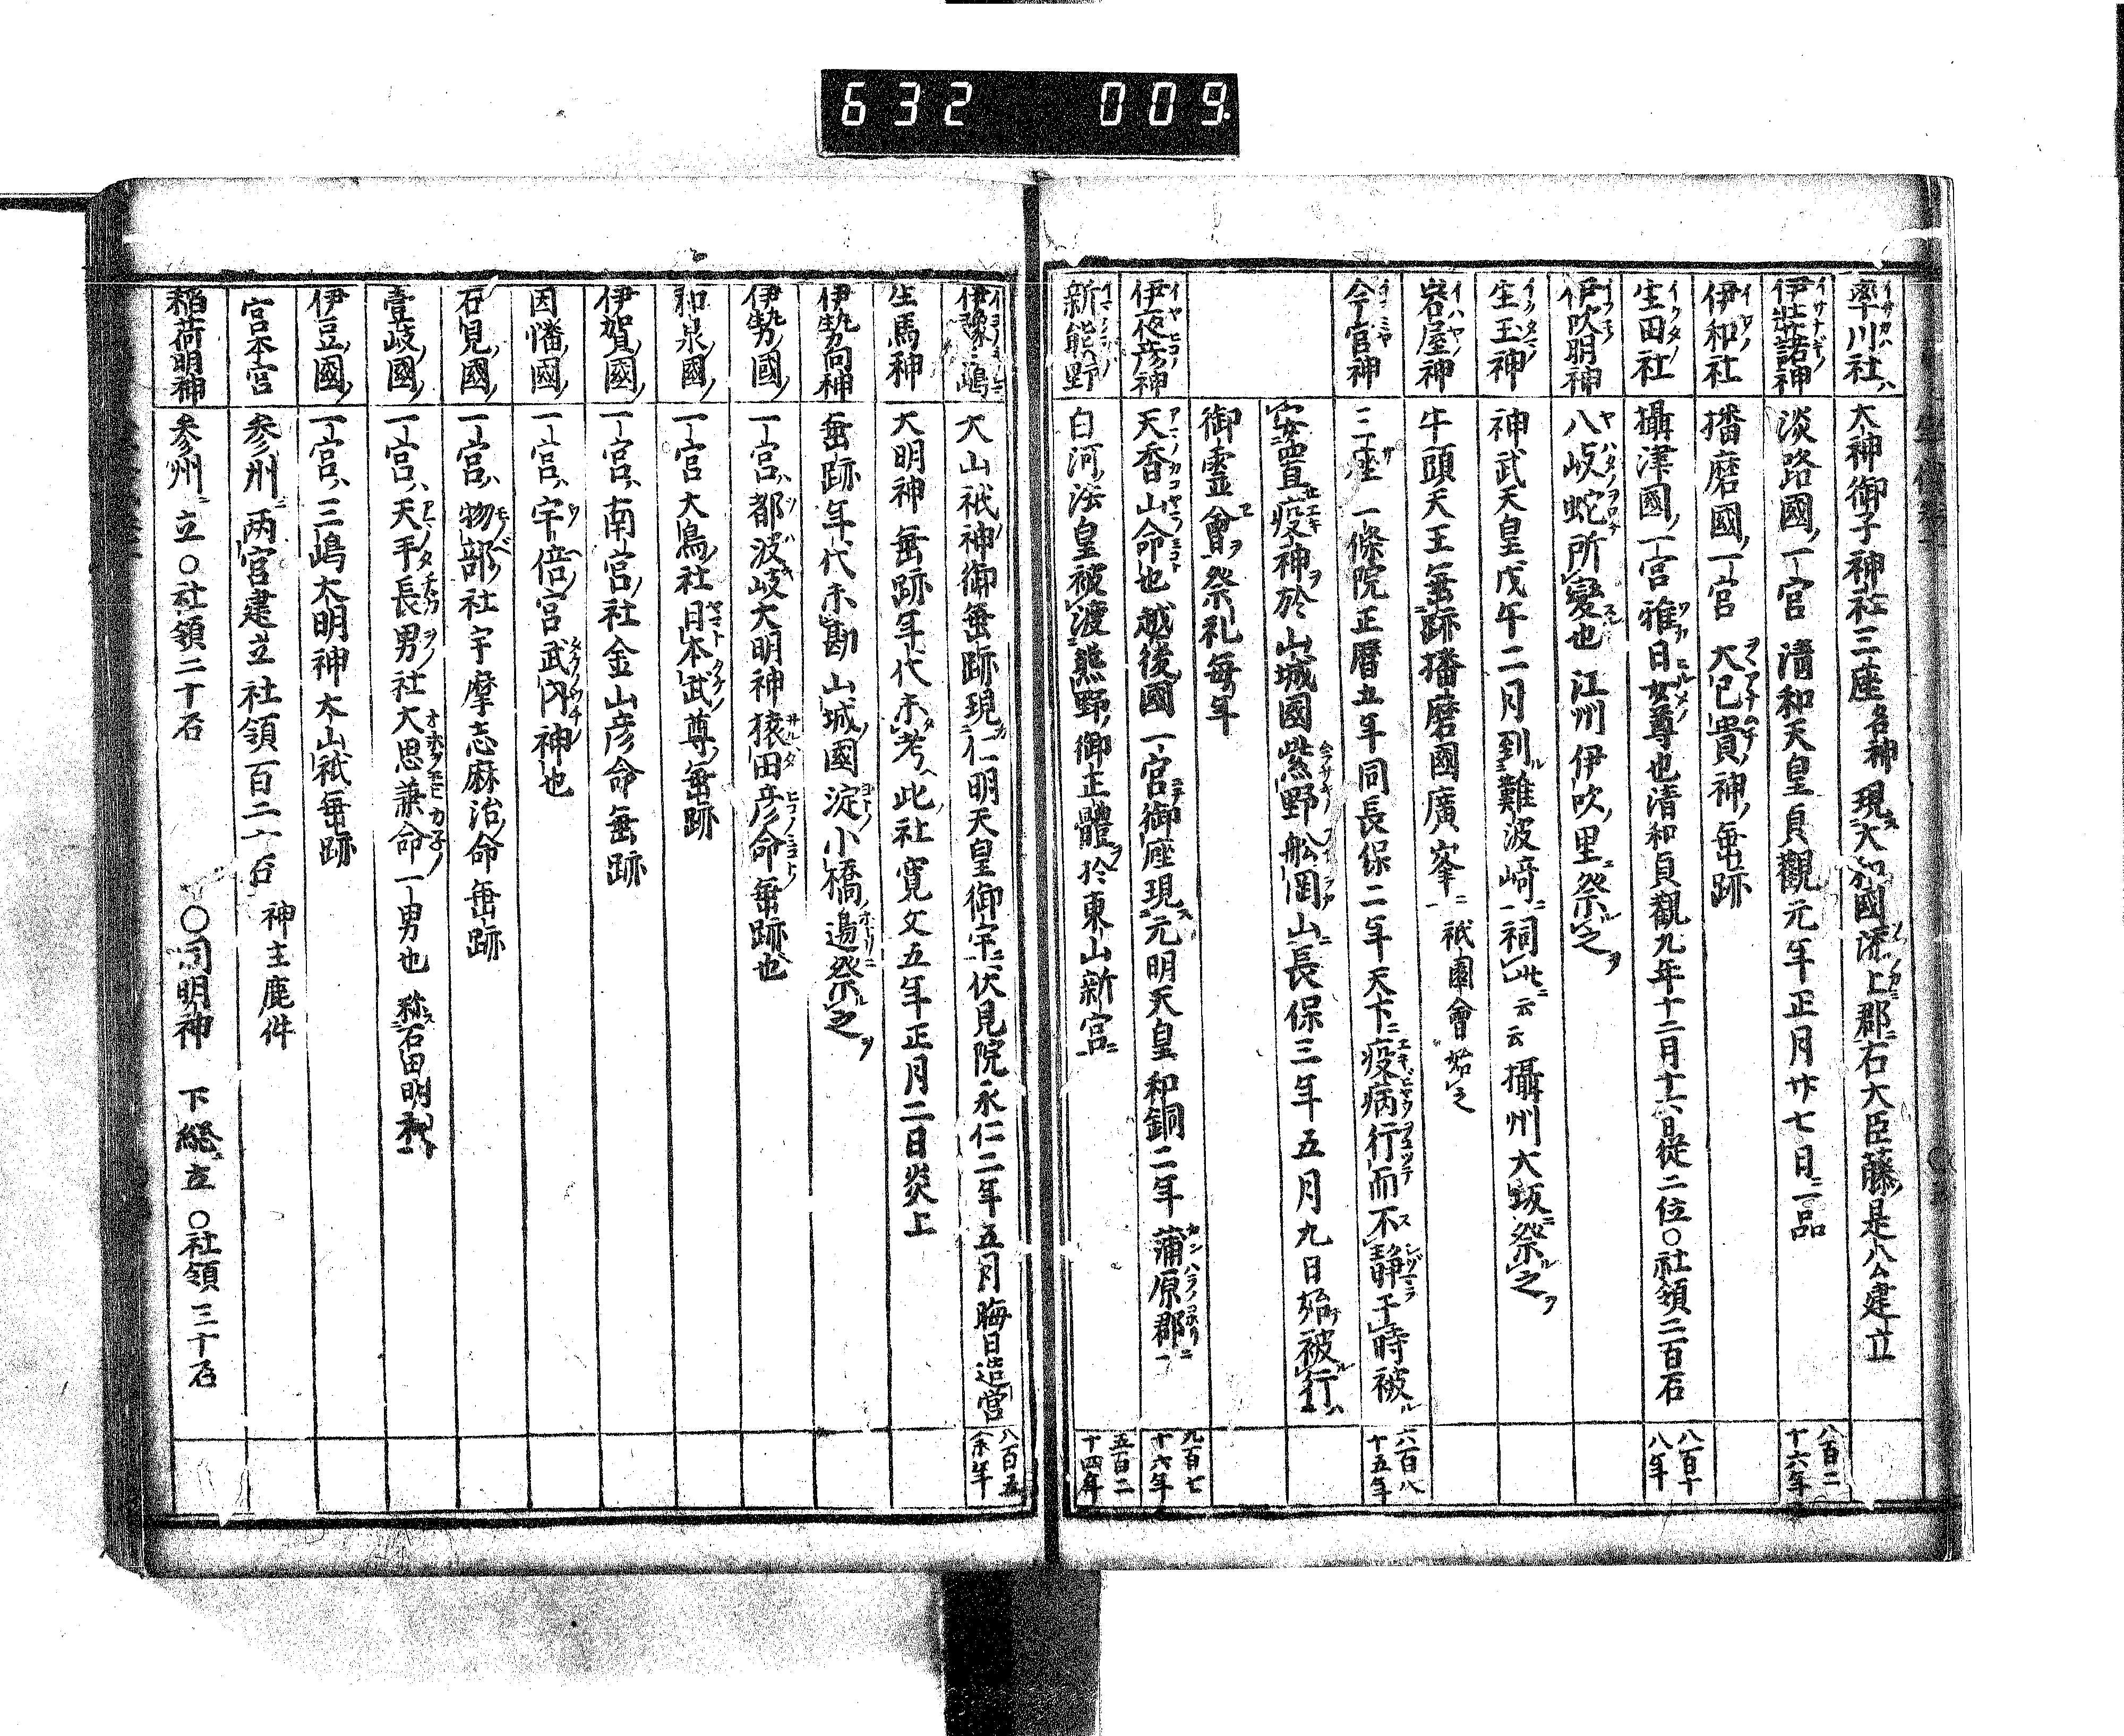 632 009
率川社 大神御子神社三座名神 現大和國添上郡右大臣藤是公建立
伊弉諾神 淡路國一宮 清和天皇貞觀元年正月廿七日一品 八百二十六年
伊和社 播磨國一宮 大已貴神垂跡
生田社 攝津國一宮雅日女尊也清和貞觀九年十二月十六日從二位○社領二百石 八百十八年
伊吹明神 八岐蛇所變也 江州伊吹里祭之
生玉神 神武天皇戊午二月到難波﨑祠此云云 攝州大坂祭之
岩屋神 牛頭天王垂跡播磨國廣峯 祇園會始之
今宮神 三座 一條院正暦五年同長保二年天下疫病行而不静于時被 六百八十五年
安置疫神於山城國紫野舩岡山長保三年五月九日始被行
御霊會祭礼毎年
伊夜彦神 天香山命也越後國一宮御座現元明天皇和銅二年 蒲原郡 九百七十六年
新熊野 白河法皇被渡熊野御正體於東山新宮 五百二十四年
伊豫三嶋 大山祇神御垂跡現仁明天皇御宇伏見院永仁二年五月晦日造営 八百五余年
生馬神 大明神垂跡年代未考此社寛文五年正月二日炎上
伊勢向神 垂跡年代未勘 山城國淀小橋邊祭之
伊勢國 一宮都波岐大明神猿田彦命垂跡也
和泉國 一宮大鳥社日本武尊垂跡
伊賀國 一宮南宮社金山彦命垂跡
因幡國 一宮宇倍宮武内神也
石見國 一宮物部社宇摩志麻治命垂跡
壹岐國 一宮天手長男社大思兼命一男也 称石田明神
伊豆國 一宮三嶋大明神大山祇垂跡
宮本宮 参州両宮建立社領百二十石 神主鹿件
稲荷明神 参州立○社領二十石 ○同明神 下総立○社領三十石